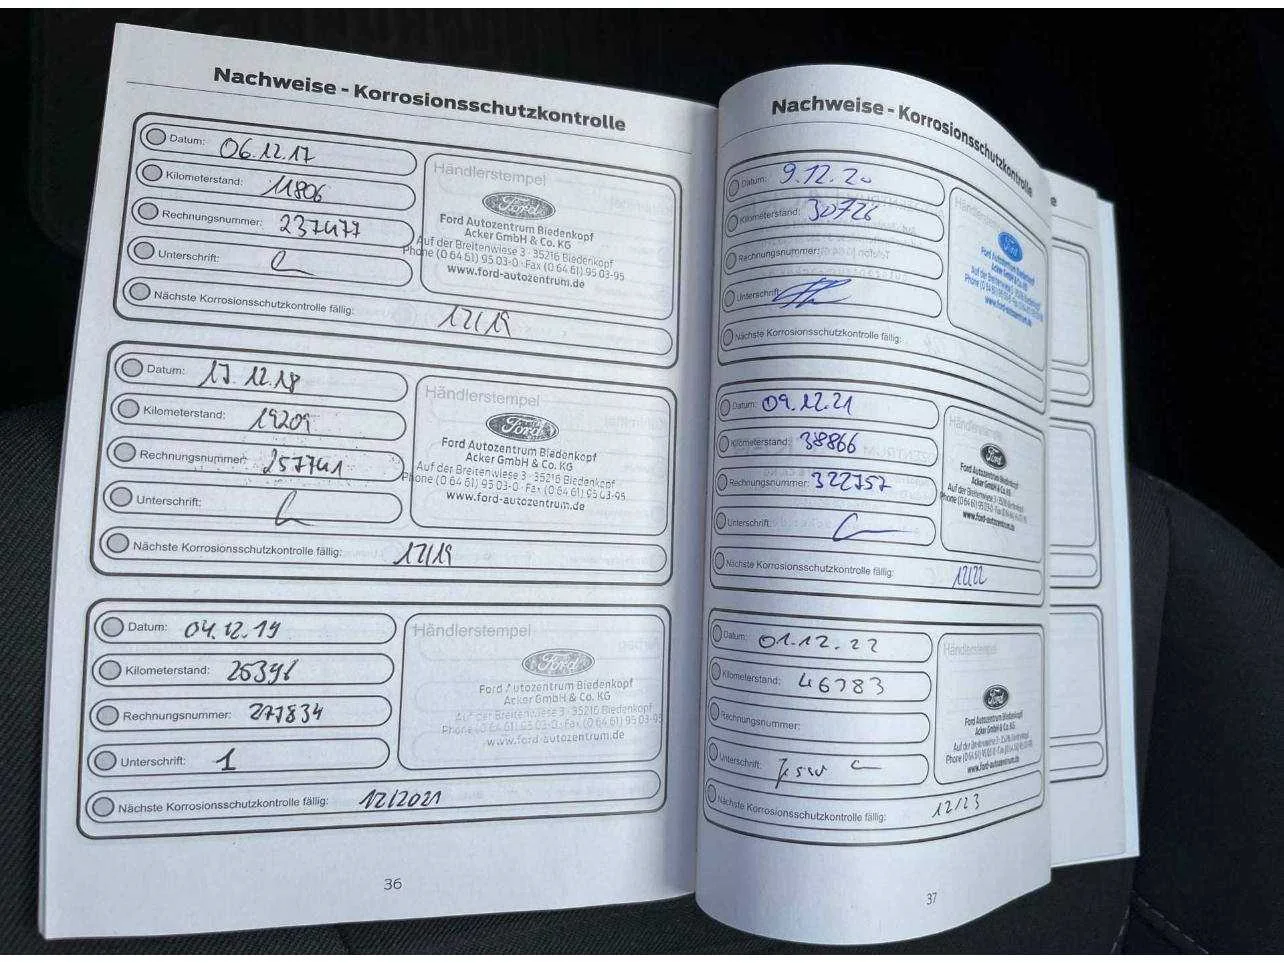 Nachweise - Korrosionsschutzkontrolle
Datum: 06.12.17
Kilometerstand: 11806
Rechnungsnummer: 237477
Unterschrift:
Nächste Korrosionsschutzkontrolle fällig: 12/19
Händlerstempel
Ford
Ford Autozentrum Biedenkopf
Acker GmbH & Co. KG
Auf der Breitenwiese 3 · 35216 Biedenkopf
Phone (0 64 61) 95 03-0 · Fax (0 64 61) 95 03-95
www.ford-autozentrum.de
Datum: 17.12.18
Kilometerstand: 19209
Rechnungsnummer: 257741
Unterschrift:
Nächste Korrosionsschutzkontrolle fällig: 12/19
Händlerstempel
Ford
Ford Autozentrum Biedenkopf
Acker GmbH & Co. KG
Auf der Breitenwiese 3 · 35216 Biedenkopf
Phone (0 64 61) 95 03-0 · Fax (0 64 61) 95 03-95
www.ford-autozentrum.de
Datum: 04.12.19
Kilometerstand:
Rechnungsnummer: 277834
Unterschrift:
Nächste Korrosionsschutzkontrolle fällig: 12/2021
Händlerstempel
Ford
Ford Autozentrum Biedenkopf
Acker GmbH & Co. KG
Auf der Breitenwiese 3 · 35216 Biedenkopf
Phone (0 64 61) 95 03-0 · Fax (0 64 61) 95 03-95
www.ford-autozentrum.de
36
Nachweise - Korrosionsschutzkontrolle
Datum: 9.12.20
Kilometerstand: 30726
Rechnungsnummer:
Unterschrift:
Nächste Korrosionsschutzkontrolle fällig:
Händlerstempel
Ford
Ford Autozentrum Biedenkopf
Acker GmbH & Co. KG
Auf der Breitenwiese 3 · 35216 Biedenkopf
www.ford-autozentrum.de
Datum: 09.12.21
Kilometerstand: 38866
Rechnungsnummer: 322757
Unterschrift:
Nächste Korrosionsschutzkontrolle fällig: 12/22
Händlerstempel
Ford
Ford Autozentrum Biedenkopf
Acker GmbH & Co. KG
Auf der Breitenwiese 3 · 35216 Biedenkopf
Phone (0 64 61) 95 03-0 · Fax (0 64 61) 95 03-95
www.ford-autozentrum.de
Datum: 01.12.22
Kilometerstand: 46783
Rechnungsnummer:
Unterschrift:
Nächste Korrosionsschutzkontrolle fällig: 12/23
Händlerstempel
Ford
Ford Autozentrum Biedenkopf
Acker GmbH & Co. KG
Auf der Breitenwiese 3 · 35216 Biedenkopf
Phone (0 64 61) 95 03-0 · Fax (0 64 61) 95 03-95
www.ford-autozentrum.de
37